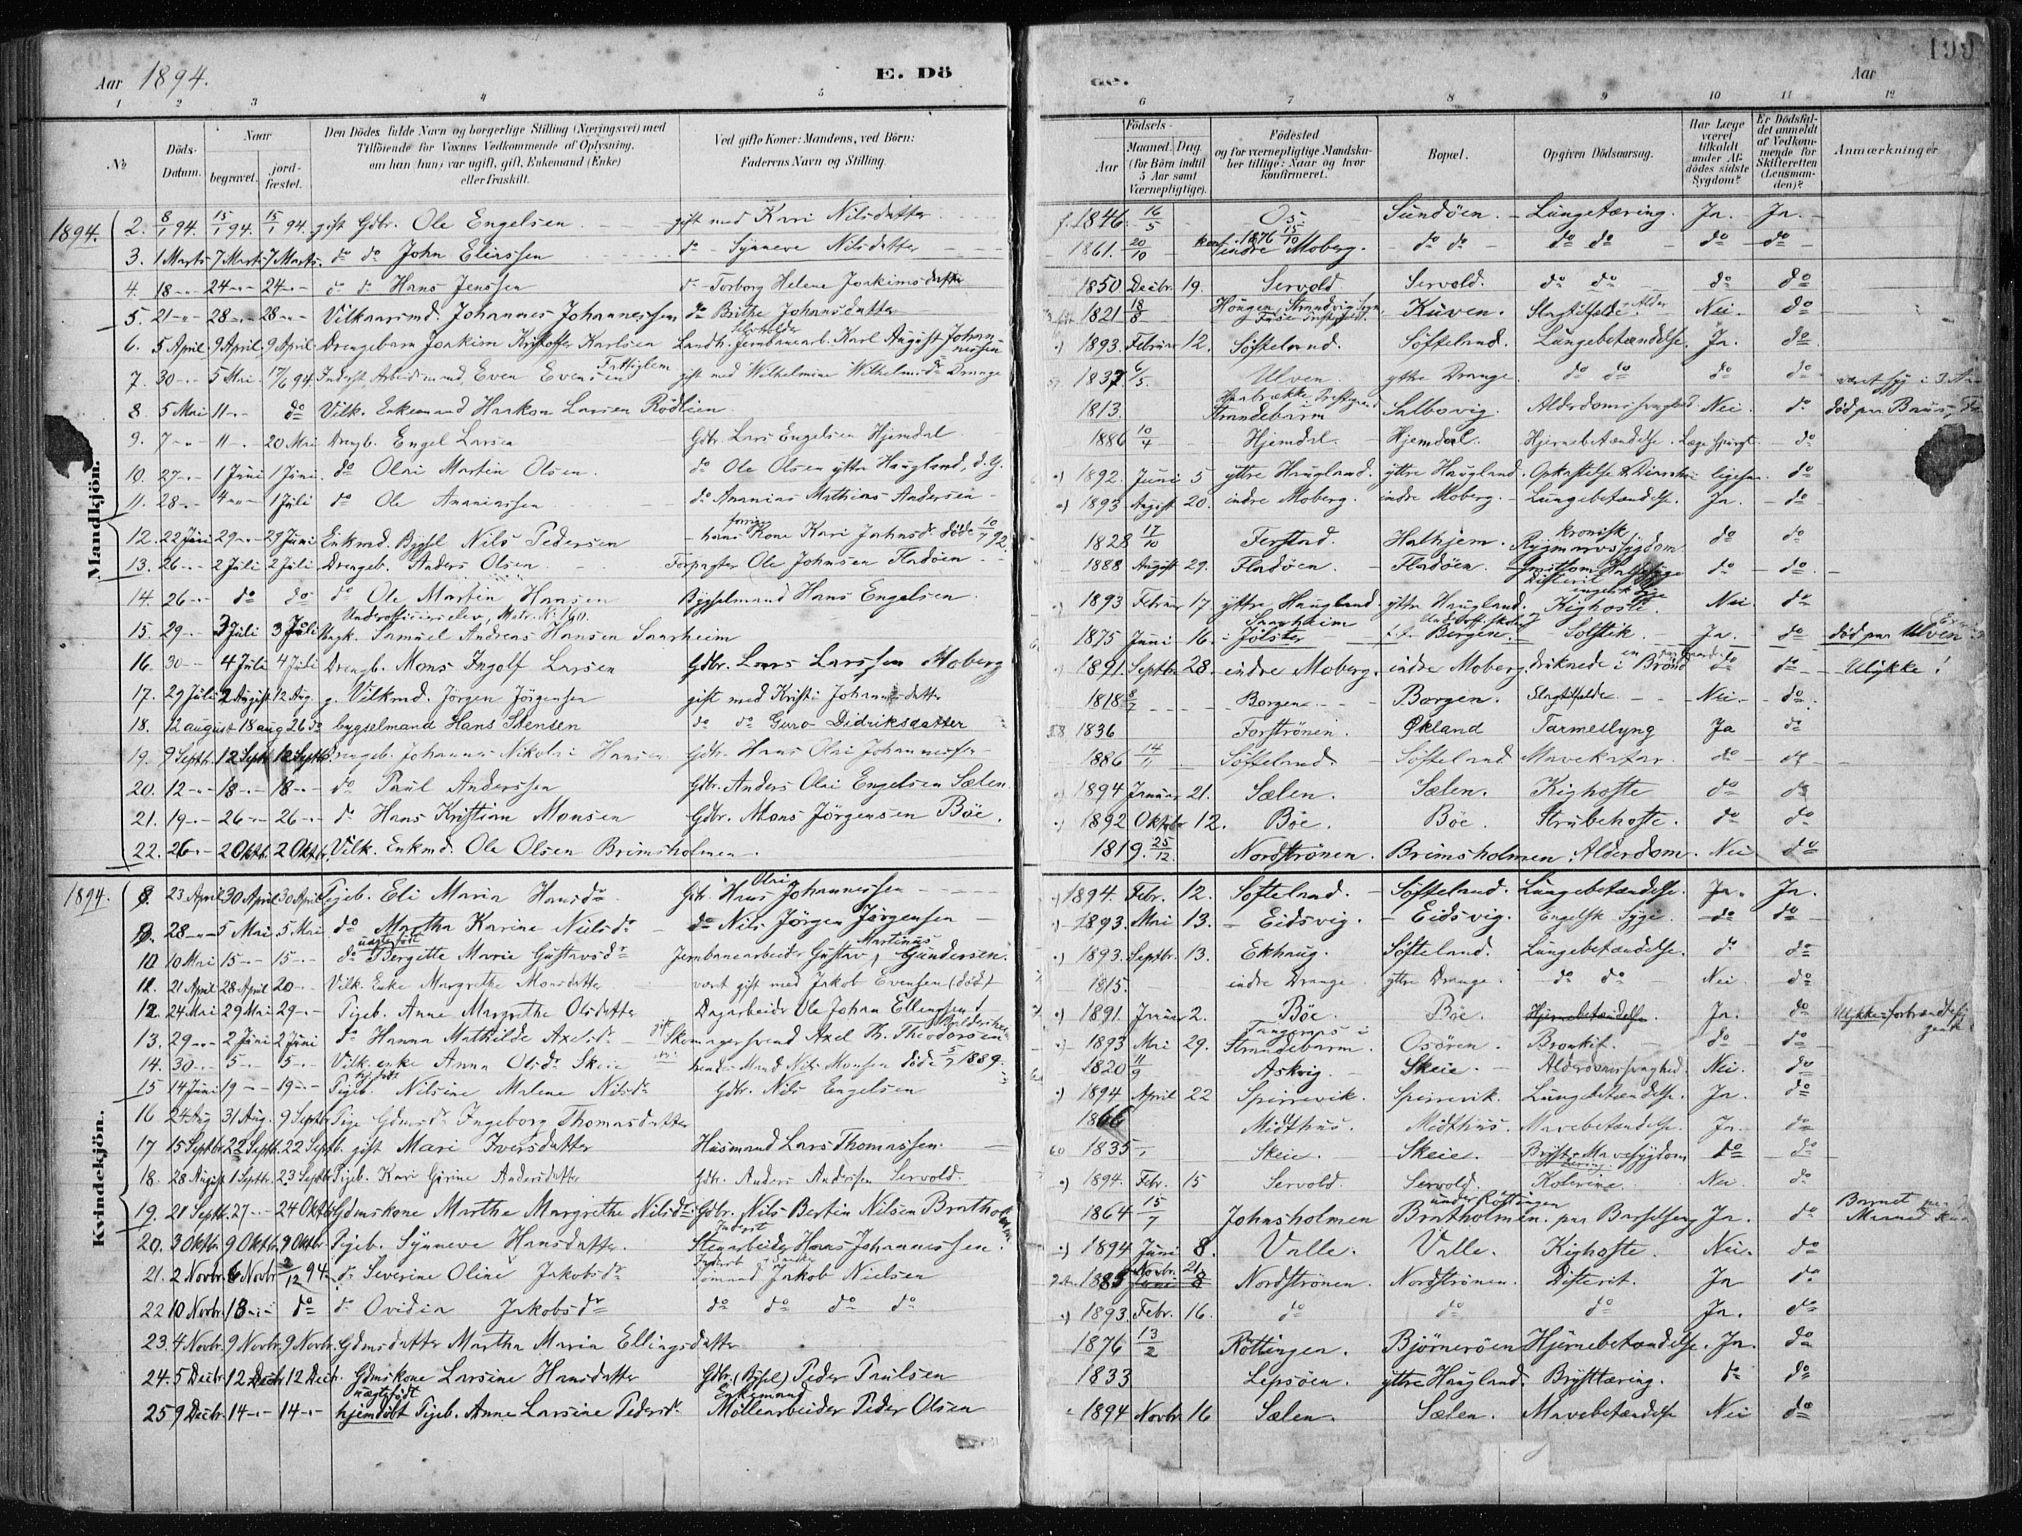 Aar 1894. E. Dö
de. Aar 199
1 2 3 4 5 6 7 8 9 10 11 12
No Döds-Datum. Naar begravet. jord-fæstet. Den Dödes fulde Navn og borgerlige Stilling (Næringsvei) med Tilföiende for Voxnes Vedkommende af Oplysning, om han (hun) var ugift, gift, Enkemand (Enke) eller fraskilt. Ved gifte Koner: Mandens, ved Börn: Faderens Navn og Stilling.
Födsels- Aar Maaned. Dag. (for Börn indtil 5 Aar samt Værnepligtige). Födested og for værnepligtige Mandskaber tillige: Naar og hvor konfirmeret. Bopæl. Opgiven Dödsaarsag. Har Læge været tilkaldt under Afdödes sidste Sygdom? Er Dödsfaldet anmeldt af Vedkommende for Skifteretten (Lensmanden)? Anmærkninger
Mandkjön.
1894. 2. 8/1 94. 15/1 94. 15/1 94. gift Gdbr. Ole Engelsen gift med Kari Nilsdatter 1846 16/5 Os Sundöen. Lungetæring. Ja. Ja.
3. 1 Marts 7 Marts 7 Marts. do do John Eliassen do Synneve Nilsdatter 1861. 20/10 konf. 1876 15/10 indre Moberg. do do do do do do
4. 18 24 24 do do Hans Jenssen do Torborg Helene Joakimsdatter 1850 Decbr. 19. Servold Servold. do do do do
5. 21 28 28 Vilkaarsmd. Johannes Johannessen do Brithe Johansdatter 1821 18/8 Kuven. Slagtilfælde. Alder Nei. do
6. 5 April. 9 April. 9 April Drengebarn Joakim Kristoffer Karlsen Jernbanearb. Karl August Johannessen 1893. Februar 12. Söfteland. Söfteland. Lungebetændelse. Ja. do
7. 30 5 Mai 17/6 94 Inderst Arbeidsmand Even Evensen Fattiglem gift med Wilhelmine Wilhelmsdr Drange 1837 6/5. Ulven. yttre Drange do do do do
8. 5 Mai 11 do Vilk. Enkemand Haakon Larsen Rödlien 1813. Strandebarm Salbovig. Nei. do
9. 7 11 20 Mai Drengb. Engel Larsen Gdbr. Lars Engelsen Hjemdal 1886 10/4 Hjemdal. Hjemdal. Hjernebetændelse. do
10. 27 1 Juni 1 Juni. do Olai Martin Olsen. do Ole Olsen yttre Haugland, 1892. Juni 5 yttre Haugland. yttre Haugland. do
11. 28 4 1 Juli do Ole Ananiassen do Ananias Mathias Andersen 1893 August 20. indre Moberg. indre Moberg. Lungebetændelse. Ja. do
12. 22 Juni 29 29 Juni Enkmd. Bygsl Nils Pedersen hans forrige Kone Kari Johnsdr. döde 10/7 92. 1828 17/10 Ferstad. Hathjem. kronisk Rygmarvssygdom do do
13. 26 2 Juli 2 Juli Drengeb. Anders Olsen Forpagter Ole Johnsen Fladöen 1888 August 29. Fladöen. Fladöen. do do
14. 26 do do do Ole Martin Hansen Bygselmand Hans Engelsen. 1893 Februar 17 yttre Haugland yttre Haugland. Kighoste. Nei. do
15. 29 3 Juli 3 Juli Underofficerselev, Matr. No 160. Ungk. Samuel Andreas Hansen Saarheim 1875 Juni 16. Saarheim i Jölster Bergen. Solstik. Ja. do död paa Ulven
16. 30 4 Juli 4 Juli Drengb. Mons Ingolf Larsen Gdbr. Lars Larssen Moberg 1891 Septbr 28. indre Moberg. indre Moberg. druknede i en Brönd do do Ulykke!
17. 29 Juli 2 August 12 Aug. g. Vilkmd. Jörgen Jörgensen gift med Kristi Johannesdatter 1818 8/7 Borgen. Borgen. Slagtilfælde Nei. do
18. 12 august 18 aug 26 do bygselmand Hans Stensen do do Guro Didriksdatter 1836 Forströnen. Økland Tarmeslyng Ja do
19. 9 Septb. 12 Septb Drengeb. Johannes Nikolai Hansen Gdbr. Hans Olai Johannessen 1886 14/11 Söfteland. Söfteland Mavekatar. do do
20. 12 18 18 do Paul Anderssen Gdbr. Anders Olai Engelsen Sælen 1894 Januar 21. Sælen. Sælen. Kighoste do do
21. 19 26 26 do Hans Kristian Monsen Gdbr. Mons Jörgensen Böe. 1892 Oktobr 12. Böe. Böe. Strubehoste. do do
22. 26 2 Oktb. 2 Oktbr. Vilk. Enkmd. Ole Olsen Brimsholmen. 1819. 25/12. Nordströnen. Brimsholmen. Alderdom. Nei do
Kvindekjön.
1894. 8. 23 April 30 April 30 April Pigeb. Eli Maria Hansdr. Gdbr. Hans Olai Johannessen 1894. Febr. 12. Söfteland. Söfteland. Lungebetændelse. Ja. Ja.
9. 28 5 Mai 5 Mai. do Martha Karine Nielsdr do Nils Jörgen Jörgensen 1893. Mai 13. Eidsvig. Eidsvig. Engelsk Syge. do do
10 10 Mai 15 15 do uægtefödt Bergitte Marie Gustavsdr Jernbanearbeider Gustav Martinus Gundersen. 1893. Septbr. 13. Ekhaug. Söfteland. Lungebetændelse. do do
11. 21 April 28 April 20 Vilk. Enke Margrethe Monsdatter været gift med Jakob Evensen (död) 1815. indre Drange yttre Drange. do do Nei do
12. 24 Mai 29 Mai 29 Pigeb. Anne Margrethe Olsdatter Dagarbeider Ole Johan Ellingsen 1891 Januar 2. Böe. Böe. Hjernebetændelse. Ja. do
13. 29 2 Juni 2 Juni do Hanna Mathilde Axelsdr Skomagersvend Axel Th. Theodorsen 1893 Mai 29. Strandebarm. Osören. Bronkit. do do
14. 30 5 5 Vilk. enke Anna Olsdr Skeie hendes Mand Nils Monsen döde 5/7 1889. 1820 11/9 Askvig. Skeie. Alderdomssvaghed. Nei. do
15 14 Juni 19 19 Pigeb. Nilsine Malene Nilsdr Gdbr. Nils Engelsen 1894 April 22 Sperrevik. Sperrevik. Lungebetændelse. Ja. do
16 24 Aug 31 Aug. 9 Septbr Pige Gdmsdr Ingeborg Thomasdatter 1866 Midthus. Midthus. Mavebetændelse. Ja. do
17 15 Septbr 22 Septb. 22 Septb. gift Mari Iversdatter Husmand Lars Thomassen. 1835 Skeie. Skeie. Bryst & Mavesygdom do do
18. 28 August 1 Septb. 23 Septbr Pigeb. Kari Girine Andersdatter Gdbr. Anders Andersen Servold. 1894. Febr. 15 Servold. Servold. Kolerine. Nei do
19. 21 Septb. 27 24 Oktbr Gdmskone Marthe Margrethe Nilsdr. Gdbr. Nils Bertin Nilsen Bratholmen 1864 15/7 Johnsholmen Bratholmen. under Röttingen paa Barselseng Ja. do
20. 3 Oktbr. 9 Oktbr. 9 Oktbr. Pigeb. Synneve Hansdatter. Inderst Stenarbeider Hans Johannessen. 1894 Juni 8. Valle. Valle. Kighoste. Nei. do
21. 2 Novbr. 6 Novbr 2/12 94. do Severine Oline Jakobsdr Jakob Nielsen 1885 Novbr. 21 Nordströnen. Nordströnen. Difterit. Ja do
22 10 Novbr. 18 do do Ovidia Jakobsdr do do do do 1893. Febr. 16. do do do Ja. do
23. 4 Novbr. 9 Novbr. 9 Novbr. Gdmsdatter Martha Maria Ellingsdatter 1876 13/2 Röttingen. Bjørneröen Hjernebetændelse. Ja. do
24. 5 Decbr. 12 Decbr 12 Decb. Gdmskone Larsine Hansdatter Gdbr. (Bysel) Peder Paulsen 1833 Lepsöen. yttre Haugland. Brysttæring. do do
25 9 Decbr. 14 14 uægtefödt hjemdöbt Pigeb. Anne Larsine Pedersdr. Enkemand Möllearbeider Peder Olsen 1894 Novbr 16 Sælen. Sælen. Mavebetændelse Nei do